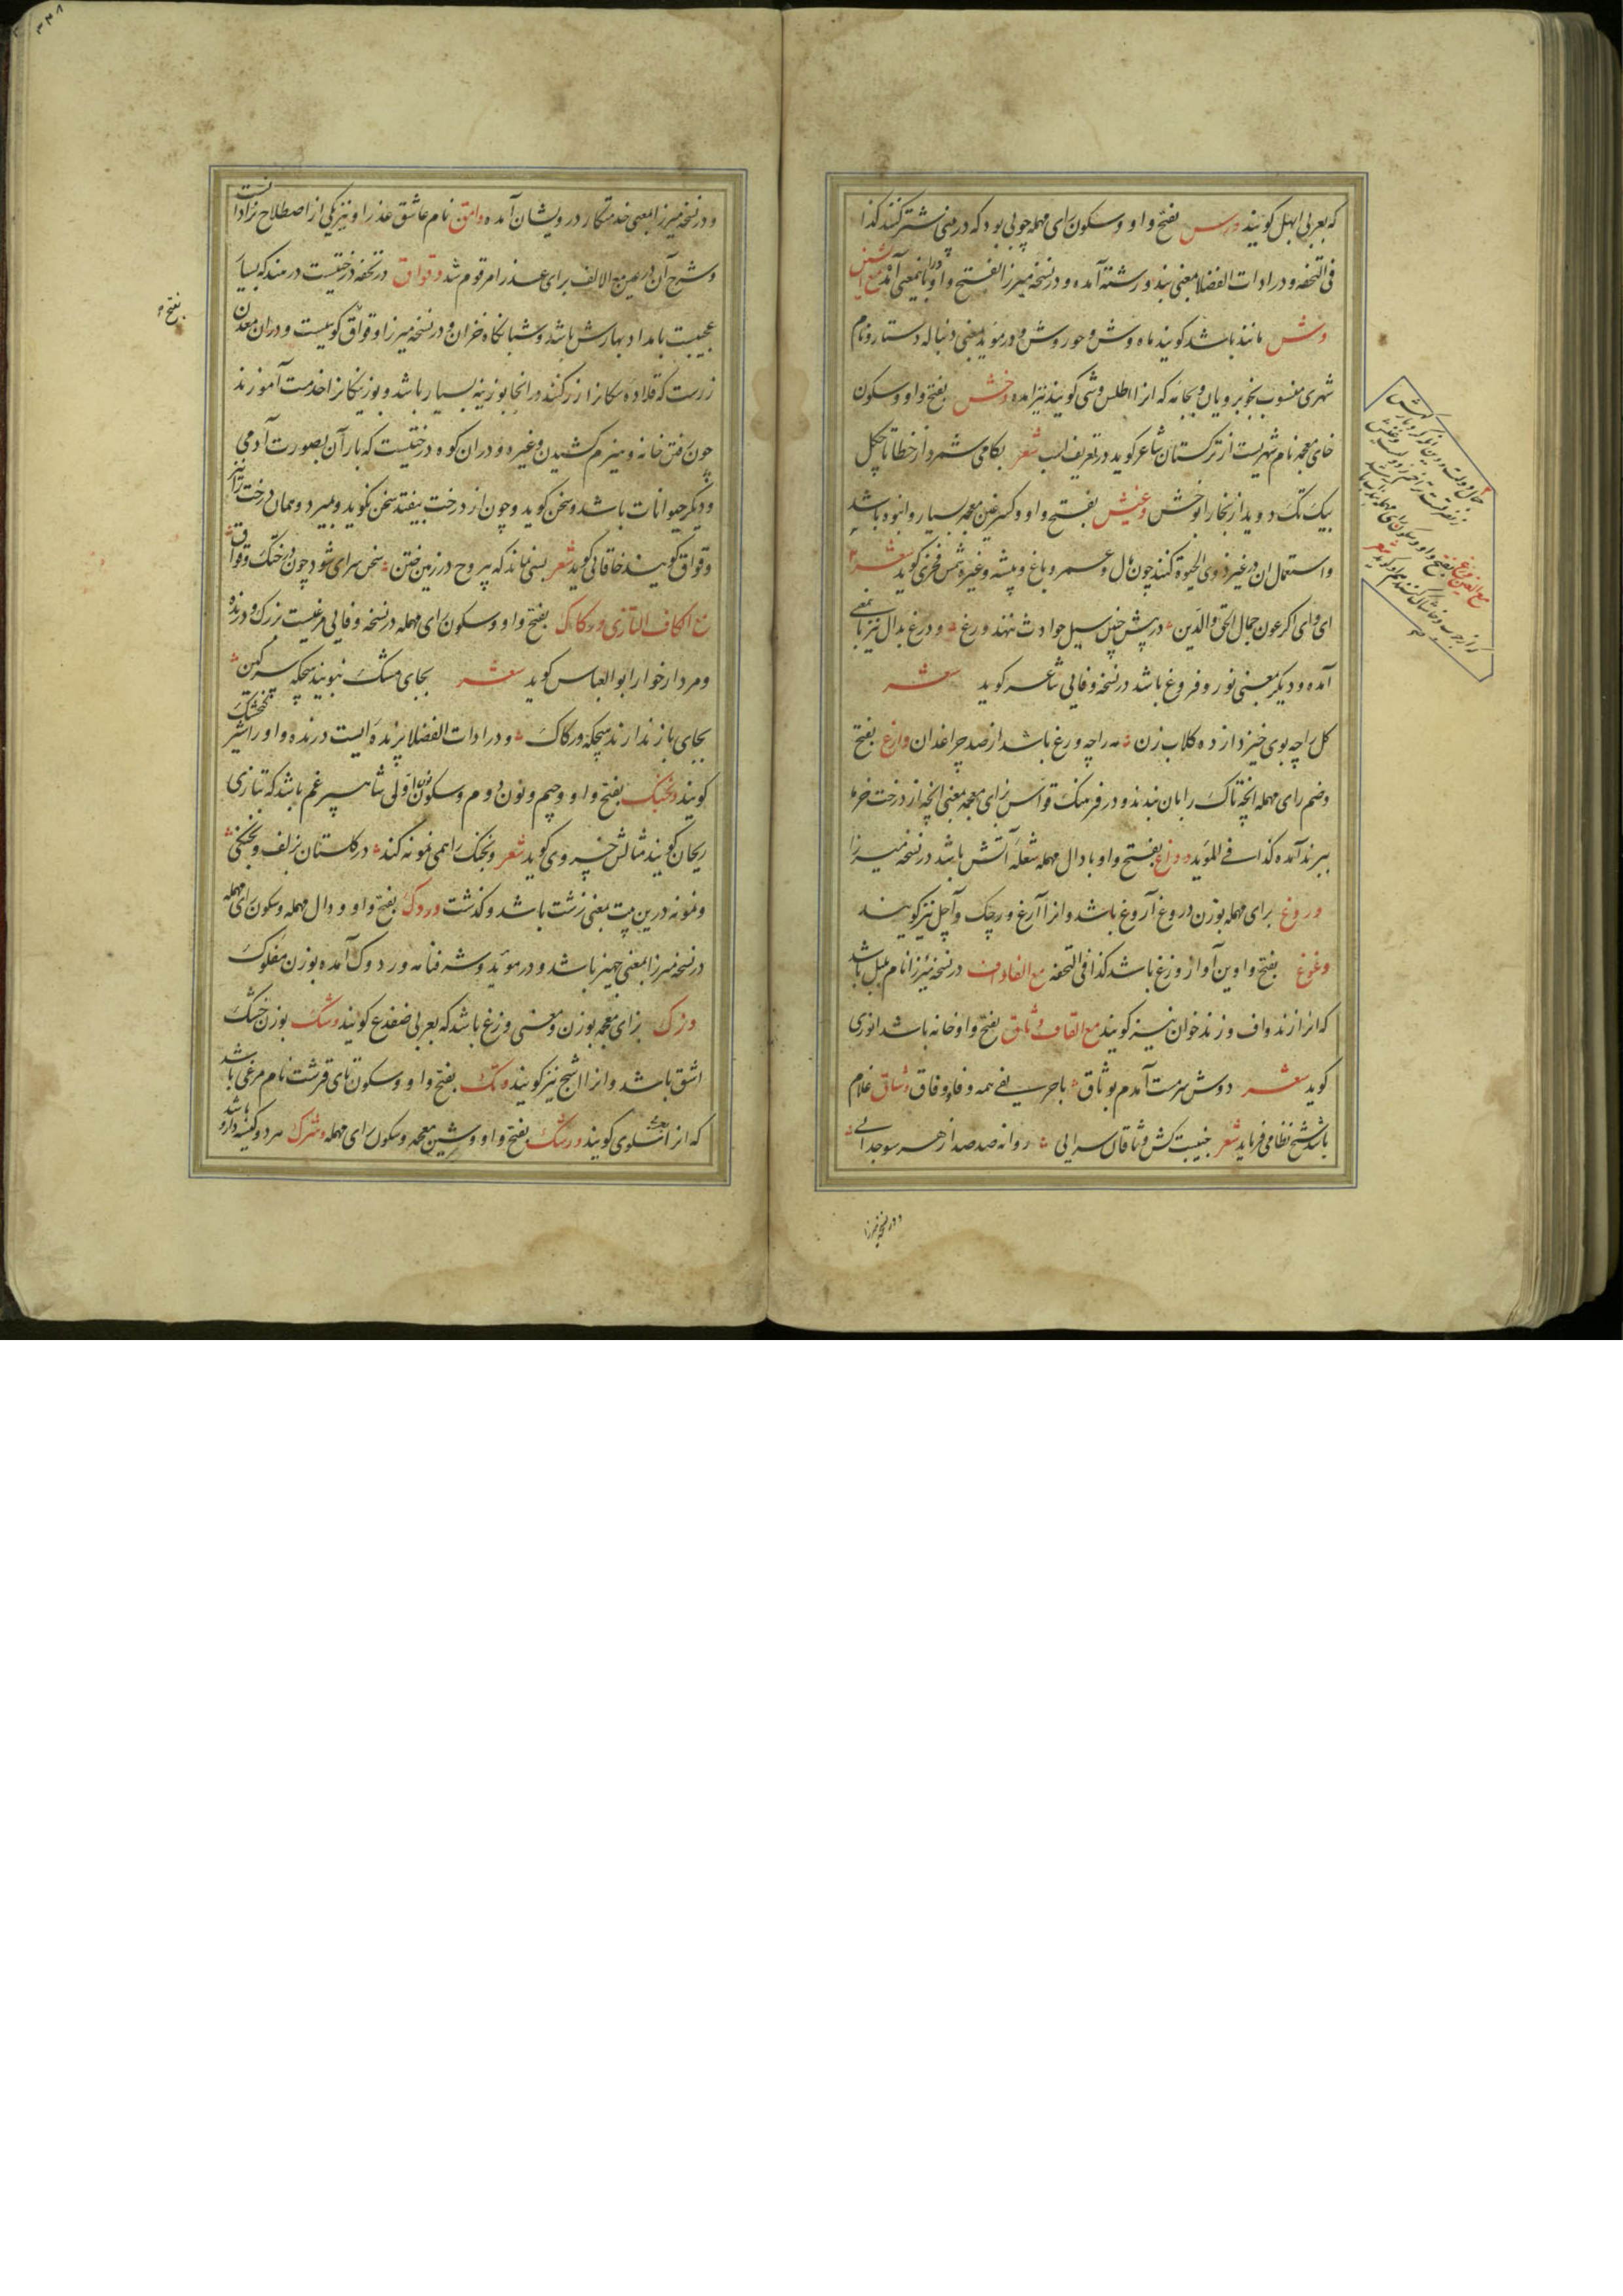 که بعربی ابهل کویند ورس بفتح واو و سکون رای مهمله چوبی بود که در بینی شتر کنند کذا
فی التحفه و در ادات الفضلا بمعنی بند و رشته آمده و در نسخه میرزا بفتح واو
وش مانند باشد کویند ماه وش و حور وش و در موید بمعنی دنباله دستار و نام
شهری منسوب بخوبرویان و جامه که انرا اطلس وشی کویند نیز امده وخش بفتح واو و سکون
خای معجمه نام شهریست از ترکستان شاعر کوید در تعریف اسب شعر بکامی شمرد از خطا تا چکل
بیک تک دوید از بخارا بوخش وغیش بفتح واو و کسر غین معجمه بسیار و انبوه باشد
و استعمال ان در غیر ذوی الحیوة کنند چون مال و عمر و باغ و بیشه و غیره شمس فخری کوید شعر
ای وای اکر عون جمال الحق والدین در پیش چنین سیل حوادث ننهد ورغ و ورغ بدال نیز باین معنی
آمده و دیکر بمعنی نور و فروغ باشد در نسخه وفایی شاعر کوید شعر
کل را چه بوی خیزد از ده کلاب زن مه را چه ورغ باشد از صد چراغدان وارغ بفتح
وضم رای مهمله انچه تاک را بان بندند و در فرهنک قواس بزای معجمه بمعنی انچه از درخت خرما
ببرند آمده کذا فی الموید ودراغ بفتح واو با دال مهمله شعله آتش باشد در نسخه میرزا
وروغ برای مهمله بوزن دروغ آروغ باشد و انرا آرغ و رچک و آجل نیز کویند
وغوغ بفتح واوین آواز وزغ باشد کذا فی التحفه مع الفا واف در نسخه میرزا نام بلبل باشد
که انرا زندواف و زندخوان نیز کویند مع القاف وثاق بفتح واو خانه باشد انوری
کوید شعر دوش سرمست آمدم بوثاق با حریفی همه وفا و وفاق وشاق غلام
باشد شیخ نظامی فرماید شعر جنیبت کش وشاقان سرایی روانه صد صد از هر سو جدایی
و در نسخه میرزا
و در نسخه میرزا بمعنی خدمتکار درویشان آمده وامق نام عاشق عذرا و نیز یکی از اصطلاح نرادانست
و شرح آن در عین مع الالف برای عذرا مرقوم شد وقواق در تحفه درختیست در هند که بسیار
عجیبست بامداد بهارش باشد و شبانکاه خزان و در نسخه میرزا وقواق کوهیست و در ان معدن
زرست که قلاده سکانرا از زر کنند و در انجا بوزینه بسیار باشد و بوزینکانرا خدمت آموزند
چون رفتن خانه و هیزم کشیدن و غیره و در ان کوه درختیست که بار آن بصورت آدمی
و دیکر حیوانات باشد و سخن کوید و چون از درخت بیفتد سخن نکوید و بمیرد و همان درخت را نیز
وقواق کویند خاقانی کوید شعر بسی نماند که بی روح در زمین ختن سخن سرای شود چون درختک وقواق
مع الکاف التازی ورکاک بفتح واو و سکون رای مهمله در نسخه وفایی مرغیست بزرک و درنده
و مردارخوار ابوالعباس کوید شعر بجای مشک نبویند هیچکه سرکین
بجای باز ندارند هیچکه ورکاک و در ادات الفضلا پرنده ایست درنده و او را شیر کنجشک
کویند ونجنک بفتح واو و جیم و نون دوم و سکون نون اولی شاه سپرغم باشد که بتازی
ریحان کویند مثالش خسروی کوید شعر ونجنک را همی نمونه کند در کلستان بزلف ونجنکی
و نمونه درین بیت بمعنی زشت باشد و کذشت وردک بفتح واو و دال مهمله و سکون رای مهمله
در نسخه میرزا بمعنی جهیز باشد و در موید و شرفنامه وردوک آمده بوزن مفلوک
وزک بزای معجمه بوزن و معنی وزغ باشد که بعربی ضفدع کویند وشک بوزن خشک
اشق باشد و انرا اشج نیز کویند وتک بفتح واو و سکون تای قرشت نام مرغی باشد
که انرا سلوی کویند ورشک بفتح واو و شین معجمه و سکون رای مهمله وشرک